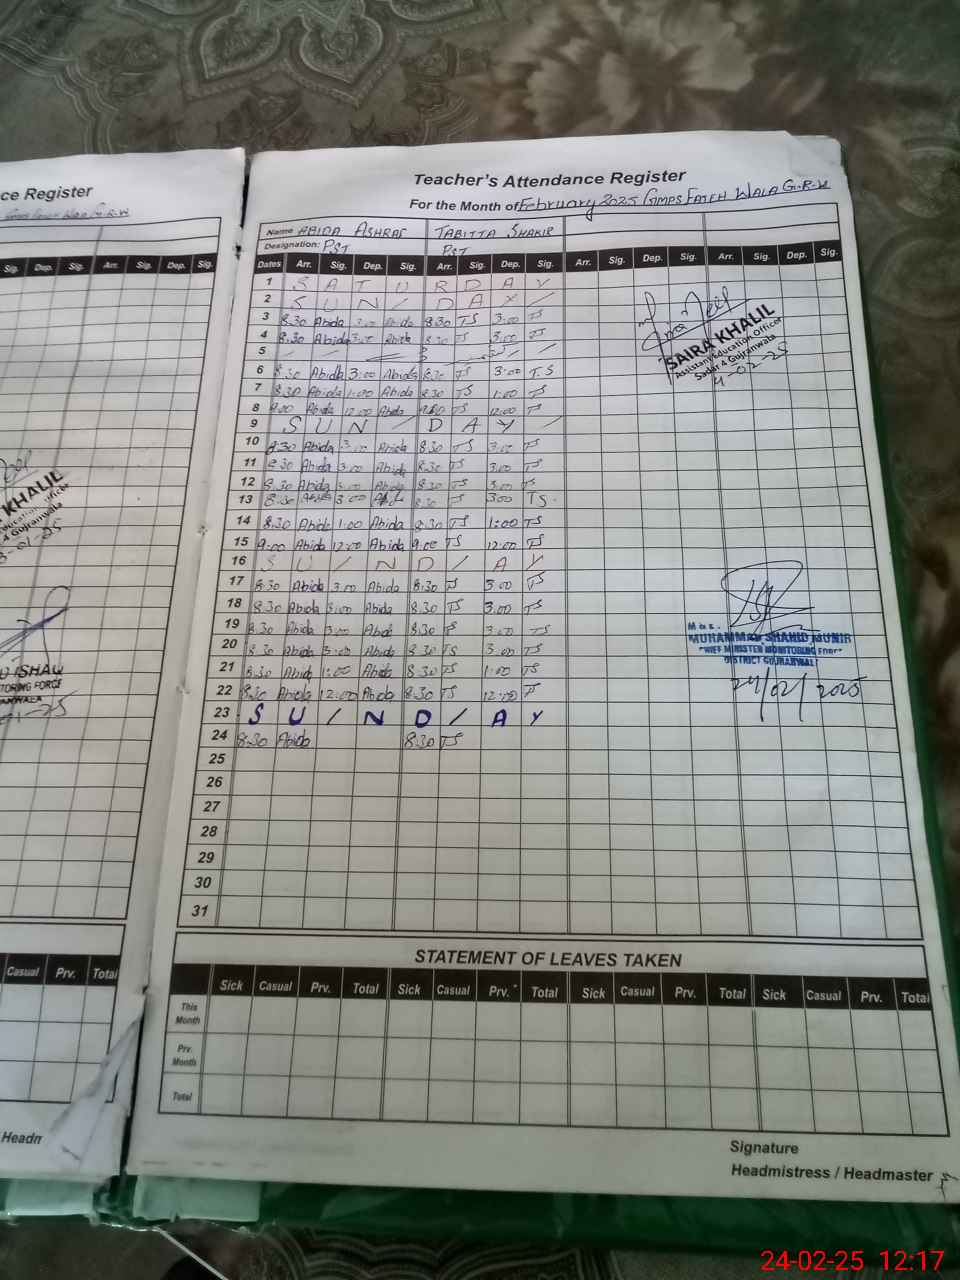 ce Register
Teacher's Attendance Register
For the Month of February 2025 GMPS FATEH WALA G.R.W
Name ABIDA ASHRAF TABITTA SHAKIR
Designation: PST PST
Sig. Dep. Sig. Arr. Sig. Dep. Sig.
Dates Arr. Sig. Dep. Sig. Arr. Sig. Dep. Sig. Arr. Sig. Dep. Sig. Arr. Sig. Dep. Sig.
1 S A T U R D A Y
2 S U N / D A Y /
3 8.30 Abida 3:00 Abida 8.30 TS 3:00 TS
4 8.30 Abida 3:00 Abida 8.30 TS 3.00 TS
5
6 8.30 Abida 3:00 Abida 8.30 TS 3:00 T.S
7 8.30 Abida 1:00 Abida 8.30 TS 1:00 TS
8 9.00 Abida 12:00 Abida TS 12:00 TS
9 S U N / D A Y /
10 8.30 Abida 3:00 Abida 8.30 TS 3.00 TS
11 8.30 Abida 3.00 Abida 8.30 TS 3.00 TS
12 8.30 Abida 3.00 Abida 8.30 TS 3.00 TS
13 8:30 Abida 3:00 8.30 TS 3:00 TS.
14 8.30 Abida 1:00 Abida 8.30 TS 1:00 TS
15 9.00 Abida 12:00 Abida 9.00 TS 12:00 TS
16 S U / N D / A Y
17 8.30 Abida 3.00 Abida 8.30 TS 3.00 TS
18 8.30 Abida 3:00 Abida 8.30 TS 3.00 TS
19 8.30 Abida 3:00 Abida 8.30 TS 3:00 TS
20 8.30 Abida 3:00 Abida 8.30 TS 3.00 TS
21 8.30 Abida 1:00 Abida 8.30 TS 1:00 TS
22 8.30 Abida 12:00 Abida 8.30 TS 12:00 TS
23 S U / N D / A Y
24 8.30 Abida 8.30 TS
25
26
27
28
29
30
31
SAIRA KHALIL
Assistant Education Officer
Sadar 4 Gujranwala
4-02-25
KHALIL
4 Gujranwala
-01-25
MUHAMMAD SHAHID MUNIR
CHIEF MINISTER MONITORING FORCE
DISTRICT GUJRANWALA
24/02/2025
ISHAQ
TORING FORCE
01-25
STATEMENT OF LEAVES TAKEN
Casual Prv. Total
Sick Casual Prv. Total Sick Casual Prv. Total Sick Casual Prv. Total Sick Casual Prv. Total
This Month
Prv. Month
Total
Headm
Signature
Headmistress / Headmaster
24-02-25 12:17